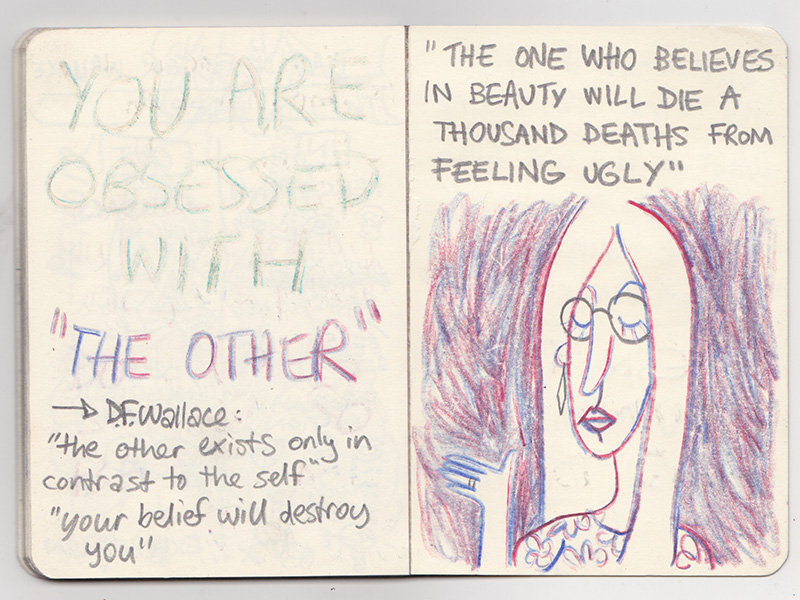 YOU ARE
OBSESSED
WITH
"THE OTHER"
→ D.F. Wallace:
"the other exists only in
contrast to the self"
"your belief will destroy
you"
"THE ONE WHO BELIEVES
IN BEAUTY WILL DIE A
THOUSAND DEATHS FROM
FEELING UGLY"